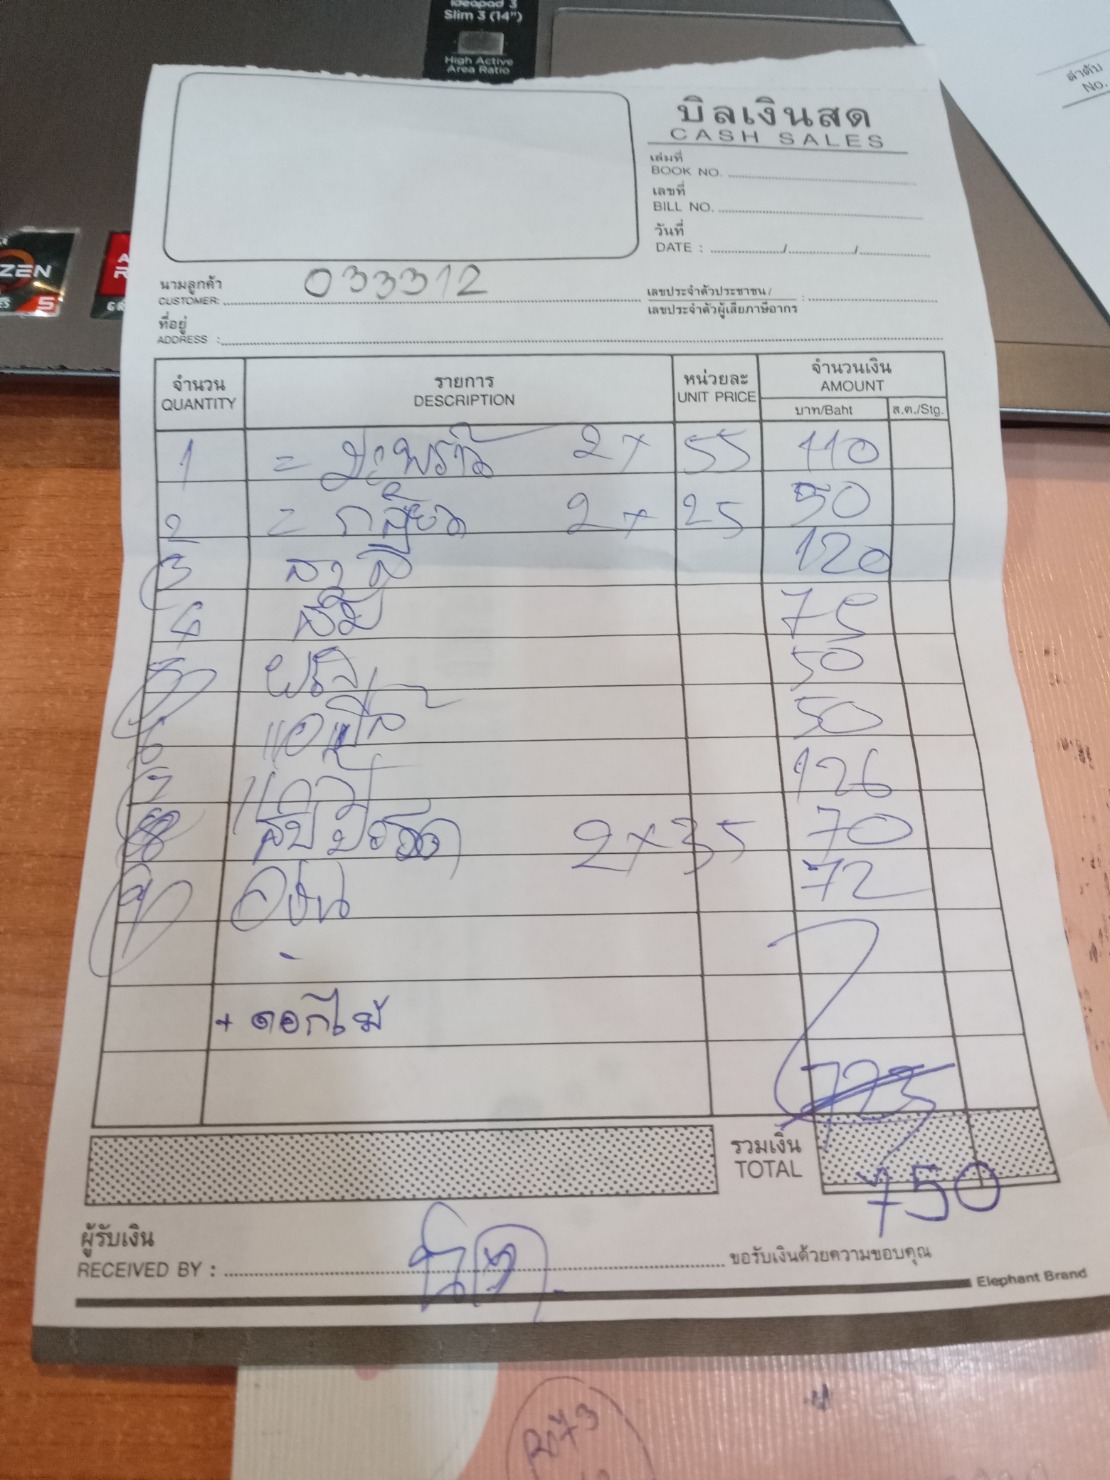 Ideapad 3
Slim 3 (14")
High Active
Area Ratio
ลำดับ
No.
ZEN
5
บิลเงินสด
CASH SALES
เล่มที่
BOOK NO.
เลขที่
BILL NO.
วันที่
DATE : / /
นามลูกค้า
CUSTOMER: 033312
เลขประจำตัวประชาชน /
เลขประจำตัวผู้เสียภาษีอากร :
ที่อยู่
ADDRESS :
จำนวน รายการ หน่วยละ จำนวนเงิน
QUANTITY DESCRIPTION UNIT PRICE AMOUNT
บาท/Baht ส.ต./Stg.
1 = มะพร้าว 2 x 55 110
2 = กล้วย 2 x 25 50
3 สาลี่ 120
4 ส้ม 75
5 ฝรั่ง 50
6 แอปเปิ้ล 50
7 126
8 สับปะรด 2 x 35 70
9 องุ่น 72
+ ดอกไม้
775
รวมเงิน
TOTAL 750
ผู้รับเงิน
RECEIVED BY :
ขอรับเงินด้วยความขอบคุณ
Elephant Brand